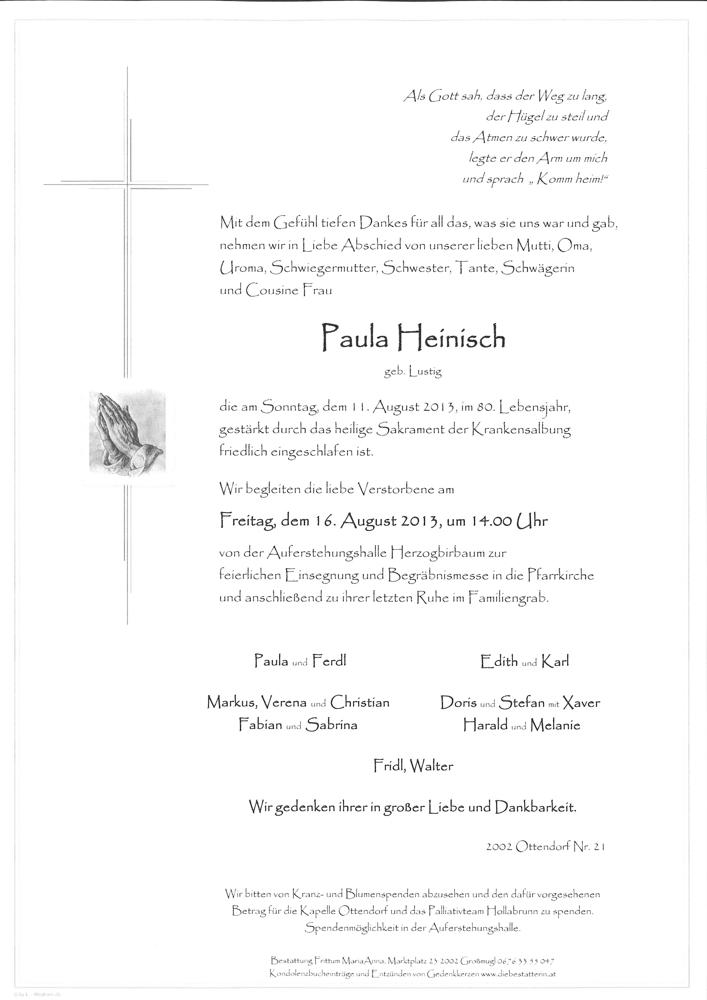 Als Gott sah, dass der Weg zu lang,
der Hügel zu steil und
das Atmen zu schwer wurde,
legte er den Arm um mich
und sprach „ Komm heim!“
Mit dem Gefühl tiefen Dankes für all das, was sie uns war und gab,
nehmen wir in Liebe Abschied von unserer lieben Mutti, Oma,
Uroma, Schwiegermutter, Schwester, Tante, Schwägerin
und Cousine Frau
Paula Heinisch
geb. Lustig
die am Sonntag, dem 11. August 2013, im 80. Lebensjahr,
gestärkt durch das heilige Sakrament der Krankensalbung
friedlich eingeschlafen ist.
Wir begleiten die liebe Verstorbene am
Freitag, dem 16. August 2013, um 14.00 Uhr
von der Auferstehungshalle Herzogbirbaum zur
feierlichen Einsegnung und Begräbnismesse in die Pfarrkirche
und anschließend zu ihrer letzten Ruhe im Familiengrab.
Paula und Ferdl
Edith und Karl
Markus, Verena und Christian
Fabian und Sabrina
Doris und Stefan mit Xaver
Harald und Melanie
Fridl, Walter
Wir gedenken ihrer in großer Liebe und Dankbarkeit.
2002 Ottendorf Nr. 21
Wir bitten von Kranz- und Blumenspenden abzusehen und den dafür vorgesehenen
Betrag für die Kapelle Ottendorf und das Palliativteam Hollabrunn zu spenden.
Spendenmöglichkeit in der Auferstehungshalle.
Bestattung Frittum MariaAnna, Marktplatz 23 2002 Großmugl 0676 33 55 047
Kondolenzbucheinträge und Entzünden von Gedenkkerzen www.diebestatterin.at